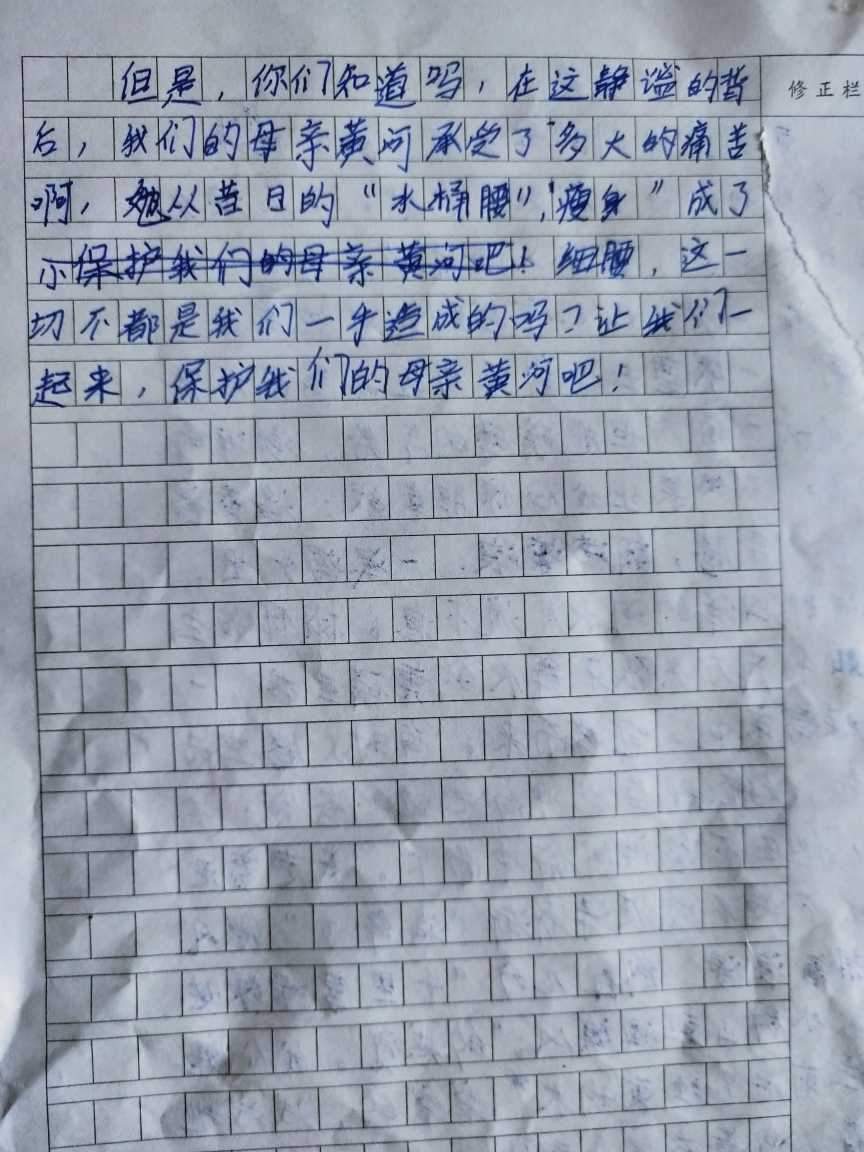 但是，你们知道吗，在这静谧的背
修正栏
后，我们的母亲黄河承受了多大的痛苦
啊，她从昔日的“水桶腰”，“瘦身”成了
小保护我们的母亲黄河吧！细腰，这一
切不都是我们一手造成的吗？让我们一
起来，保护我们的母亲黄河吧！